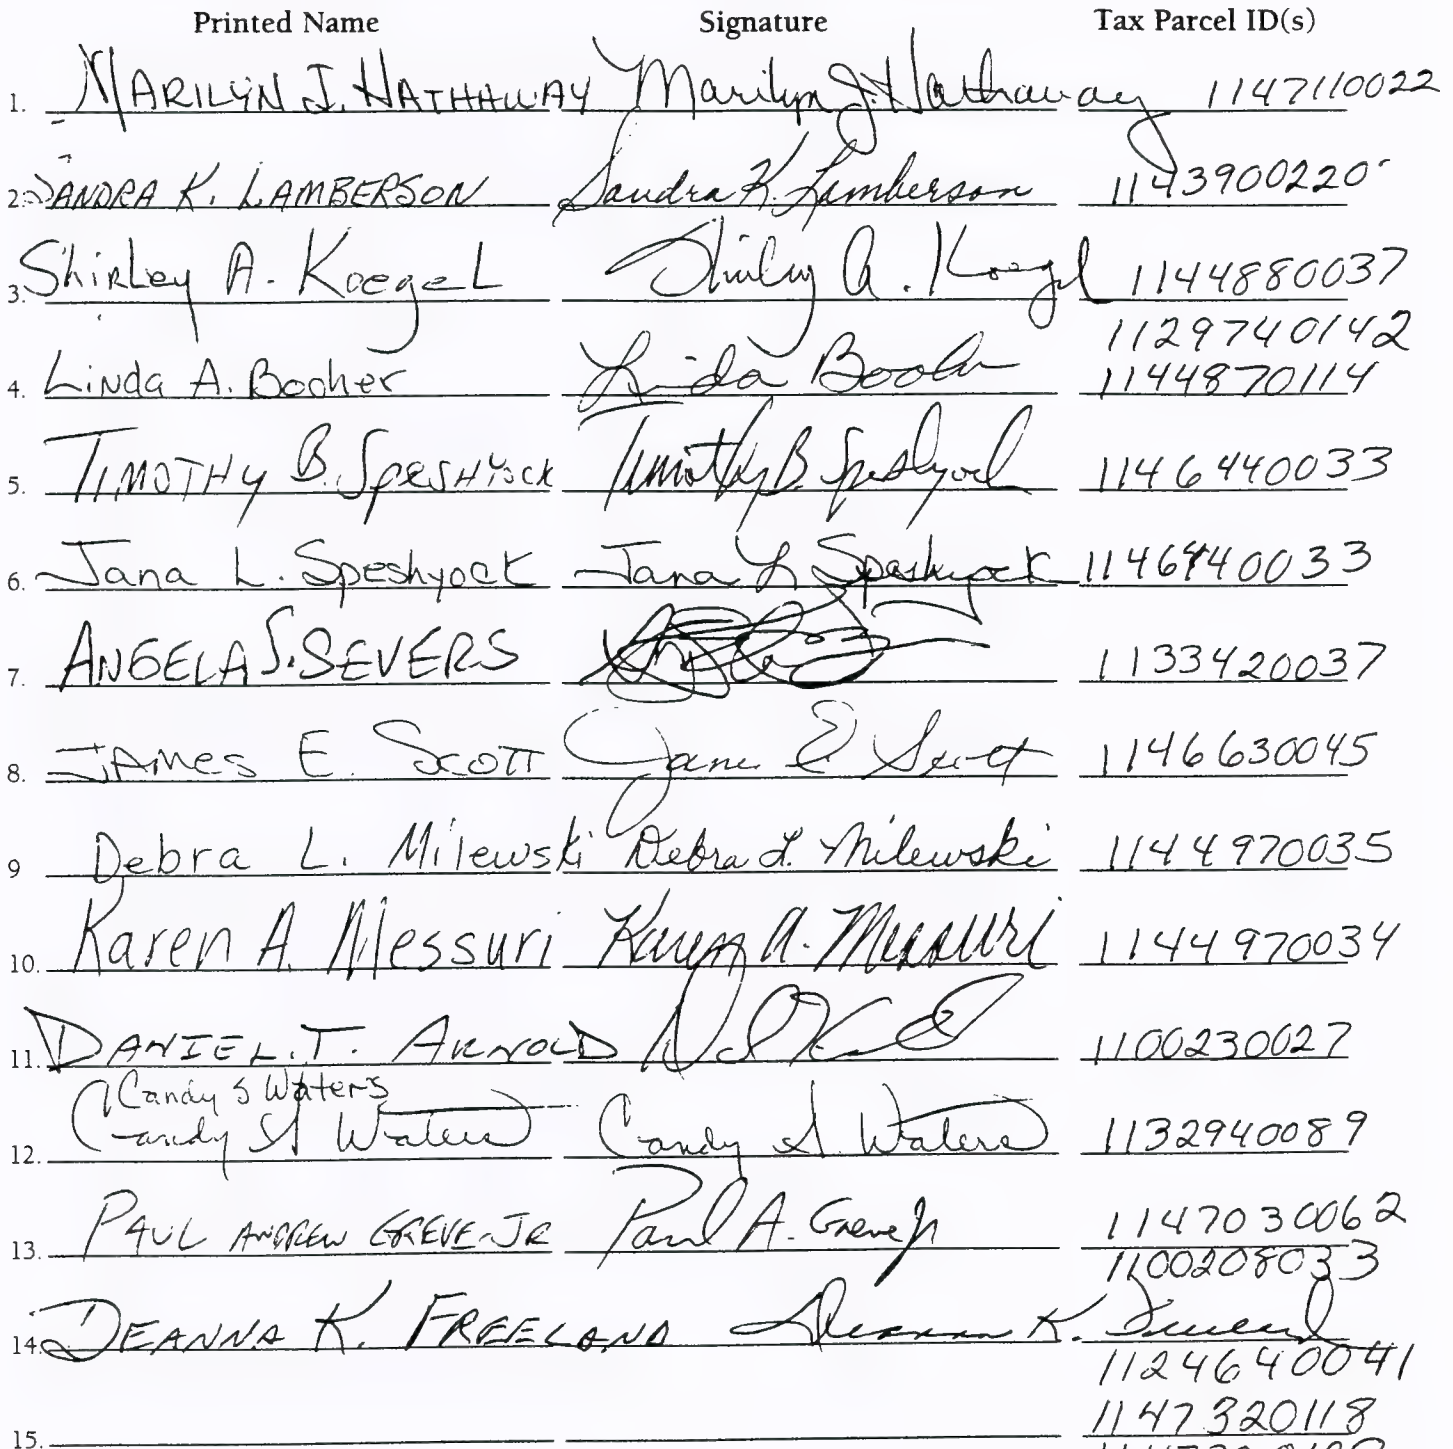 Printed Name Signature Tax Parcel ID(s)
1. MARILYN J. HATHAWAY Marilyn J. Hathaway 1147110022
2. SANDRA K. LAMBERSON Sandra K. Lamberson 1143900220
3. Shirley A. Koegel Shirley A. Koegel 1144880037
1129740142
4. Linda A. Booher Linda Booher 1144870114
5. TIMOTHY B. SPESHYOCK Timothy B. Speshyock 1146440033
6. Jana L. Speshyock Jana L Speshyock 1146440033
7. ANGELA S. SEVERS 1133420037
8. JAMES E. SCOTT James E Scott 1146630045
9 Debra L. Milewski Debra L. Milewski 1144970035
10. Karen A. Messuri Karen A. Messuri 1144970034
11. DANIEL. T. ARNOLD 1100230027
Candy S Waters
12. Candy S Waters Candy S. Waters 1132940089
13. PAUL ANDREW GREVE JR Paul A. Greve Jr 1147030062
1100208033
14. DEANNA K. FREELAND Deanna K. Freeland
1124640041
1147320118
15.